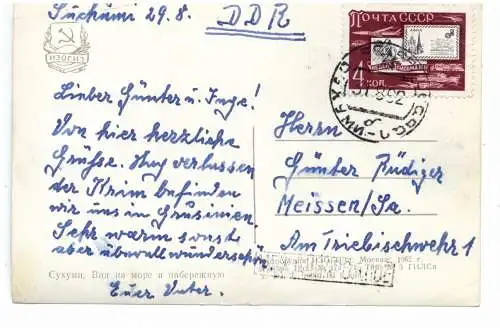 Suchumi 29.8.
DDR
ПОЧТА СССР
4 коп.
ИЗОГИЗ
Lieber Günter u. Inge!
Von hier herzliche
Grüße. Aug verlassen
der Krim befinden
wir uns in Grusinien.
Sehr warm sonst
aber überall wunderschön
Euer Vater.
Herrn
Günter Rüdiger
Meissen/Sa.
Am Triebischwehr 1
Сухуми. Вид на море и набережную